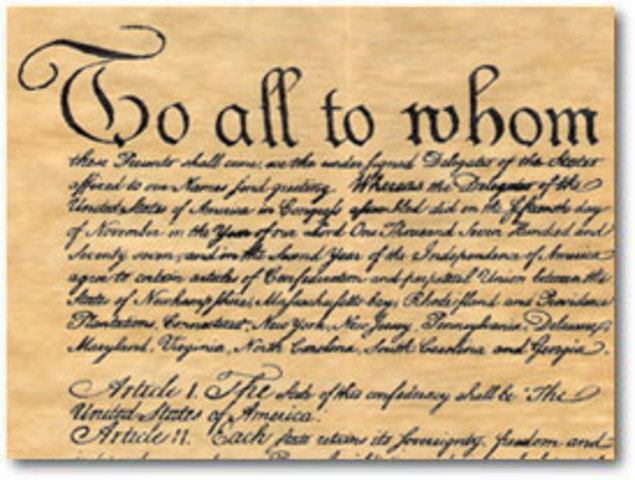 To all to whom
these Presents shall come, we the under signed Delegates of the States
affixed to our Names send greeting. Whereas the Delegates of the
United States of America in Congress assembled did on the fifteenth day
of November in the Year of our Lord One Thousand Seven Hundred and
Seventy seven, and in the Second Year of the Independence of America
agree to certain articles of Confederation and perpetual Union between the
States of Newhampshire, Massachusetts-bay, Rhode-island and Providence
Plantations, Connecticut, New York, New Jersey, Pennsylvania, Delaware,
Maryland, Virginia, North Carolina, South Carolina and Georgia.
Article I. The Stile of this confederacy shall be "The
United States of America."
Article II. Each state retains its sovereignty, freedom and